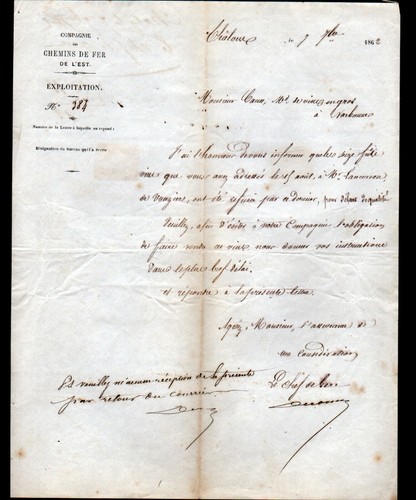 COMPAGNIE
DES
CHEMINS DE FER
DE L'EST.
EXPLOITATION.
N° 384
Numéro de la Lettre à laquelle on répond :
Désignation du bureau qui l'a écrite
Châlons, le 9 7bre 1862
Monsieur Caux, Md de vins en gros
à Narbonne
J'ai l'honneur de vous informer que les six fûts
vins que vous avez adressés le 25 août, à Mr
de Vouziers, ont été refusés par ce dernier, pour défaut de qualité
Veuillez, afin d'éviter à notre Compagnie l'obligation
de faire vendre ce vin, nous donner vos instructions
dans le plus bref délai.
et répondre à la présente lettre.
Agréez, Monsieur, l'assurance de
ma considération
Le Chef de Gare
Et veuillez m'accuser réception de la présente
par retour du courrier